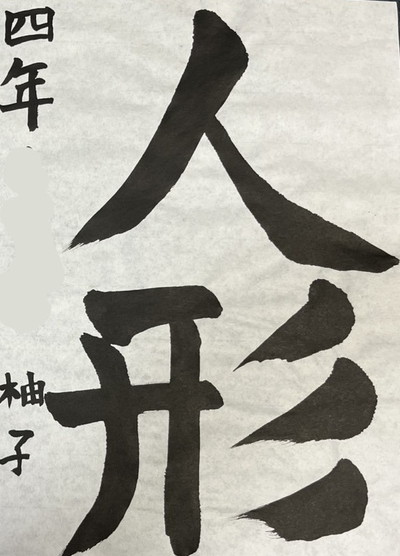 人形
四年
柚子